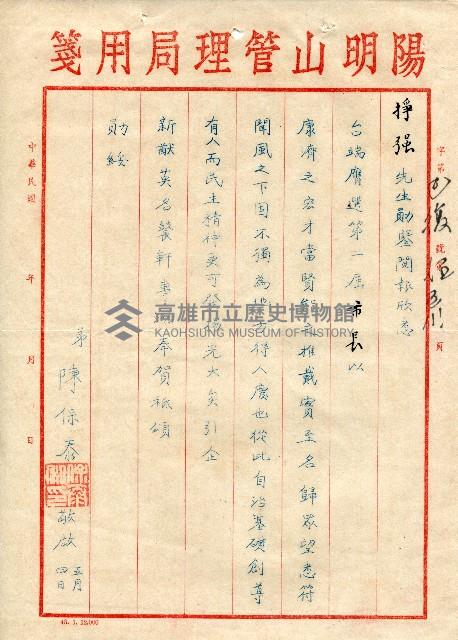 陽明山管理局用箋
字第 號 頁
掙强先生勛鑒閱報欣悉
台端膺選第一屆市長以
康濟之宏才當賢能之推戴實至名歸眾望悉符
聞風之下固不獨為地方得人慶也從此自治基礎創導
有人而民主精神更可發揚光大矣引企
新猷英名襲軒 奉賀祗頌
勛綏
弟 陳保泰 敬啟 五月四日
中華民國 年 月 日
高雄市立歷史博物館
KAOHSIUNG MUSEUM OF HISTORY